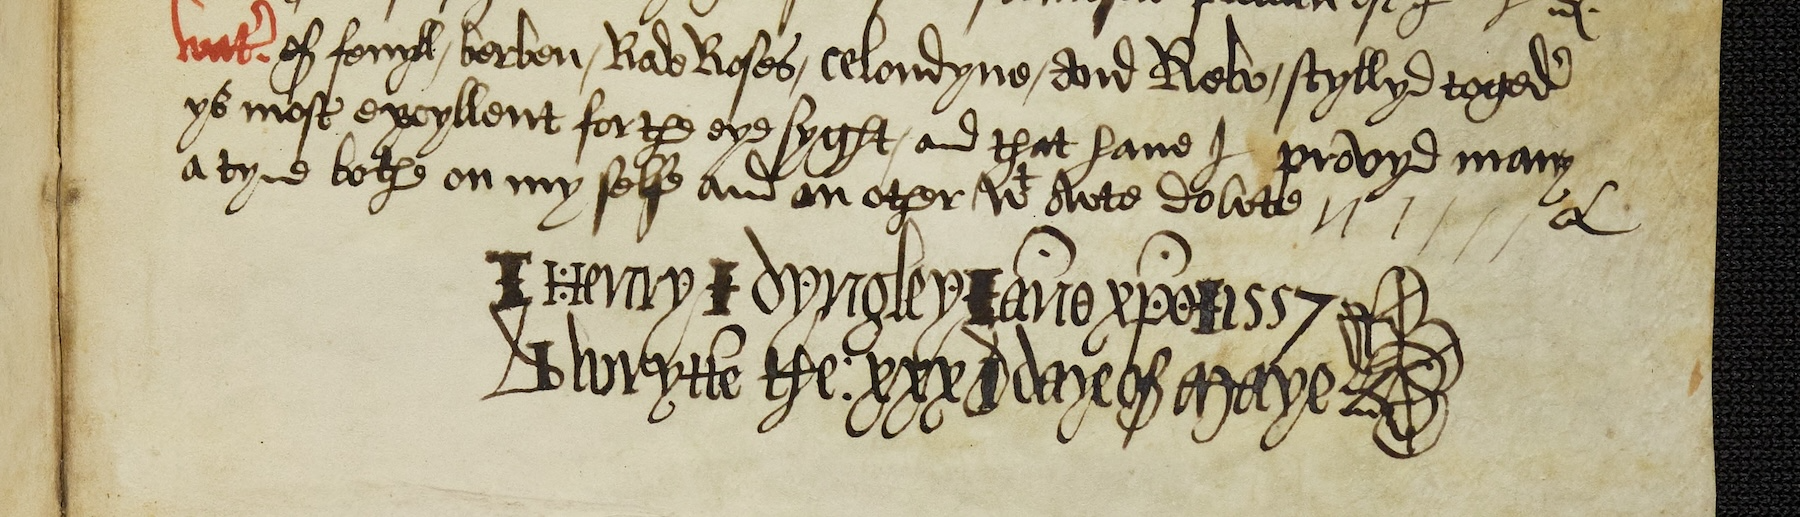 watr of fenyll / verven / Rede Roses / celondyne / and Rew / styllyd togedr
ys most excyllent for the eye syght / and that have I provyd many
a tyme bothe on my selfe and an other wt owte dowte
Henry dyngley ano xpo 1557
wrytte the : xxx daye of maye